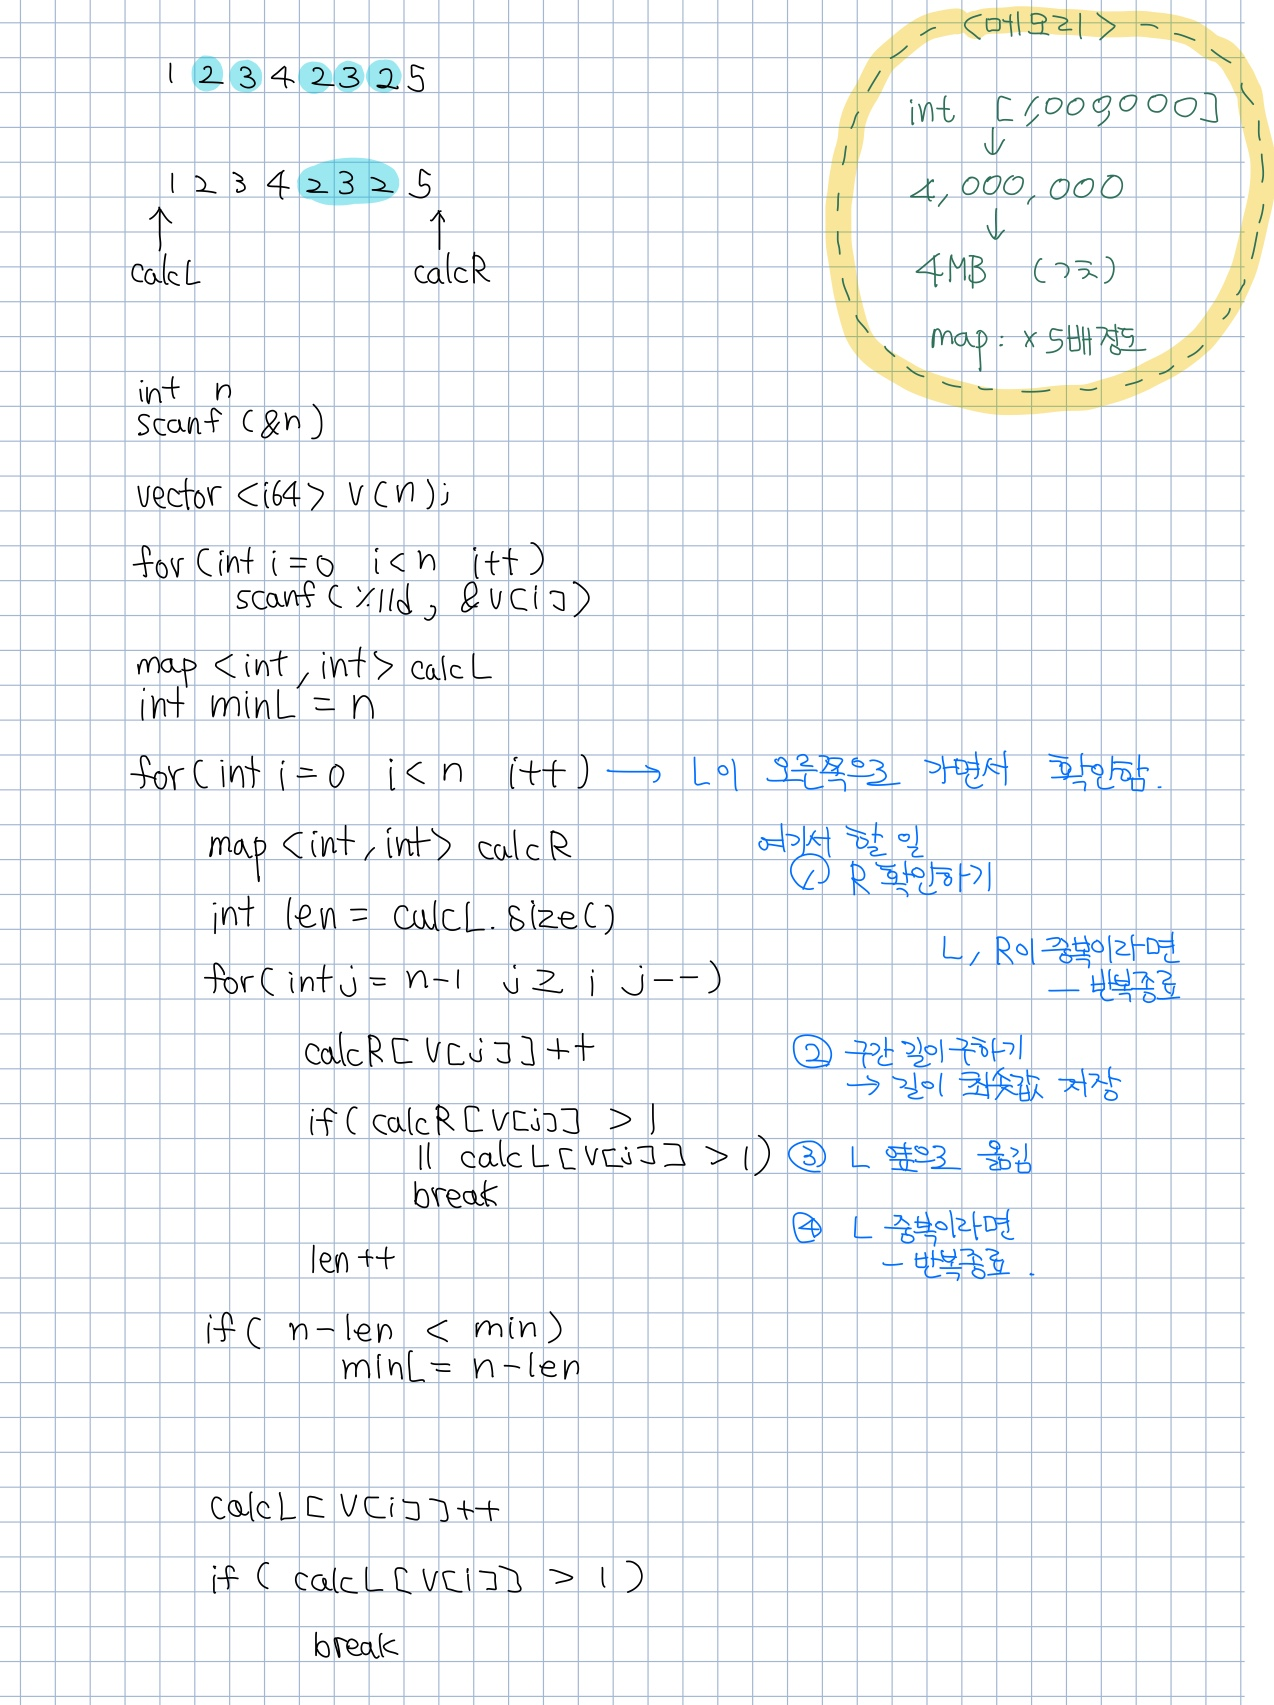 1 2 3 4 2 3 2 5
1 2 3 4 2 3 2 5
calcL
calcR
<메모리>
int [1,000,000]
↓
4,000,000
↓
4MB (기준)
map : × 5배 정도
int n
scanf (&n)
vector <i64> v(n);
for (int i = 0 i < n i++)
scanf ( %lld, &v[i])
map <int, int> calcL
int minL = n
for ( int i = 0 i < n i++) → L이 오른쪽으로 가면서 확인함.
map <int, int> calcR
int len = calcL.size()
for ( int j = n-1 j ≥ i j--)
calcR[v[j]]++
if ( calcR[v[j]] > 1
|| calcL[v[j]] > 1)
break
len ++
if ( n-len < min)
minL = n-len
calcL[v[i]]++
if ( calcL[v[i]] > 1 )
break
여기서 할 일
① R 확인하기
L, R이 중복이라면
— 반복종료
② 구간 길이 구하기
→ 길이 최솟값 저장
③ L 옆으로 옮김
④ L 중복이라면
— 반복종료.